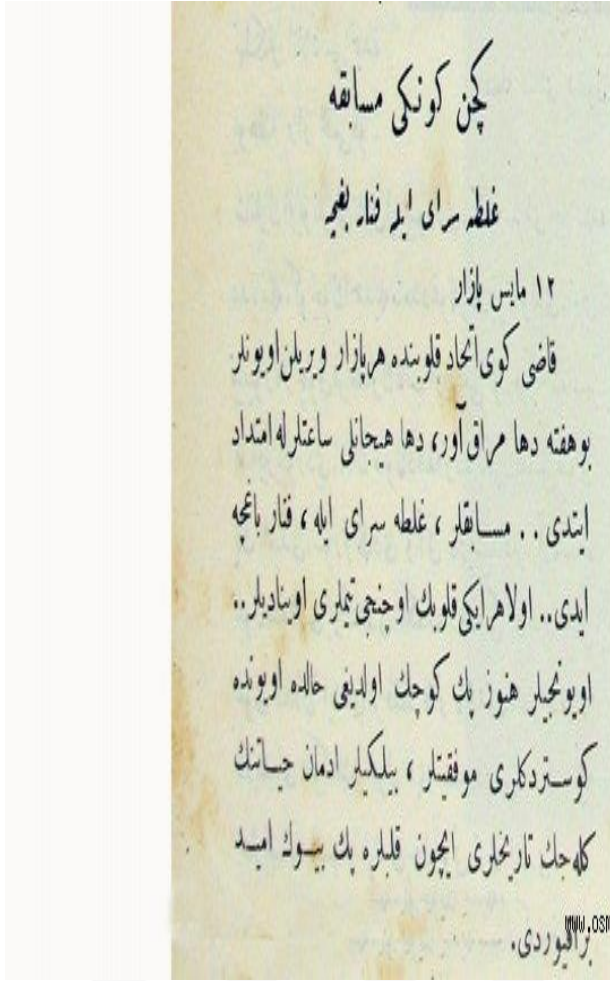 كچن كونكی مسابقه
غلطه سرای ایله فنار بغچه
۱۲ مایس پازار
قاضی كوی اتحاد قلوبنده هر پازار ویریلن اویونلر
بو هفته دها مراق آور، دها هیجانلی ساعتلرله امتداد
ایتدی . . مسابقلر ، غلطه سرای ایله ، فنار باغچه
ایدی.. اولا هر ایكی قلوبك اوچنجی تیملری اوینادیلر..
اویونجیلر هنوز پك كوچك اولدیغی حالده اویونده
كوستردكلری موفقیتلر ، بیلكیلر ادمان حیاتنك
كله جك تاریخلری ایچون قلبلره پك بیوك امید
براقیوردی.
WWW.OSM